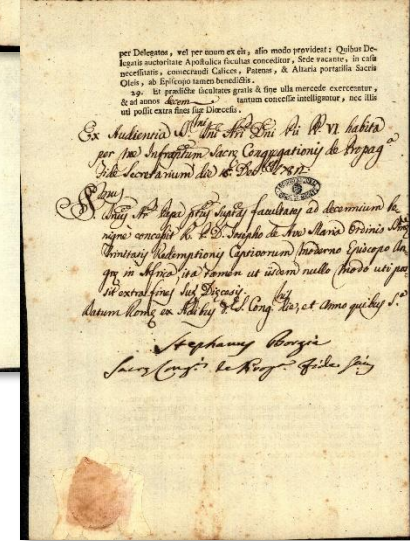 per Delegatos, vel per unum ex eis, alio modo provideat: Quibus De-
legatis auctoritate Apostolica facultas conceditur, Sede vacante, in casu
necessitatis, consecrandi Calices, Patenas, & Altaria portatilia Sacris
Oleis, ab Episcopo tamen benedictis.
29. Et prædictæ facultates gratis & sine ulla mercede exerceantur,
& ad annos decem tantum concessæ intelligantur, nec illis
uti possit extra fines suæ Diœcesis.
Ex Audientia SSmi Dni Nri Dni Pii PP. VI habita
per me Infraptum Sacræ Congregationis de Propagda
Fide Secretarium die
Dnus Nr Papa ptus supras facultates ad decennium be-
nigne concessit R. P. D. Josepho de Ave Maria Ordinis
Trinitatis Redemptionis Captivorum moderno Episcopo An-
in Africa, ita tamen ut iisdem nullo modo uti pos-
sit extra fines suæ Diœcesis.
Datum Romæ ex Ædibus d. S. Congnis die, et Anno quibus
Stephanus Borgia
Sacræ Congis de Propa Fide